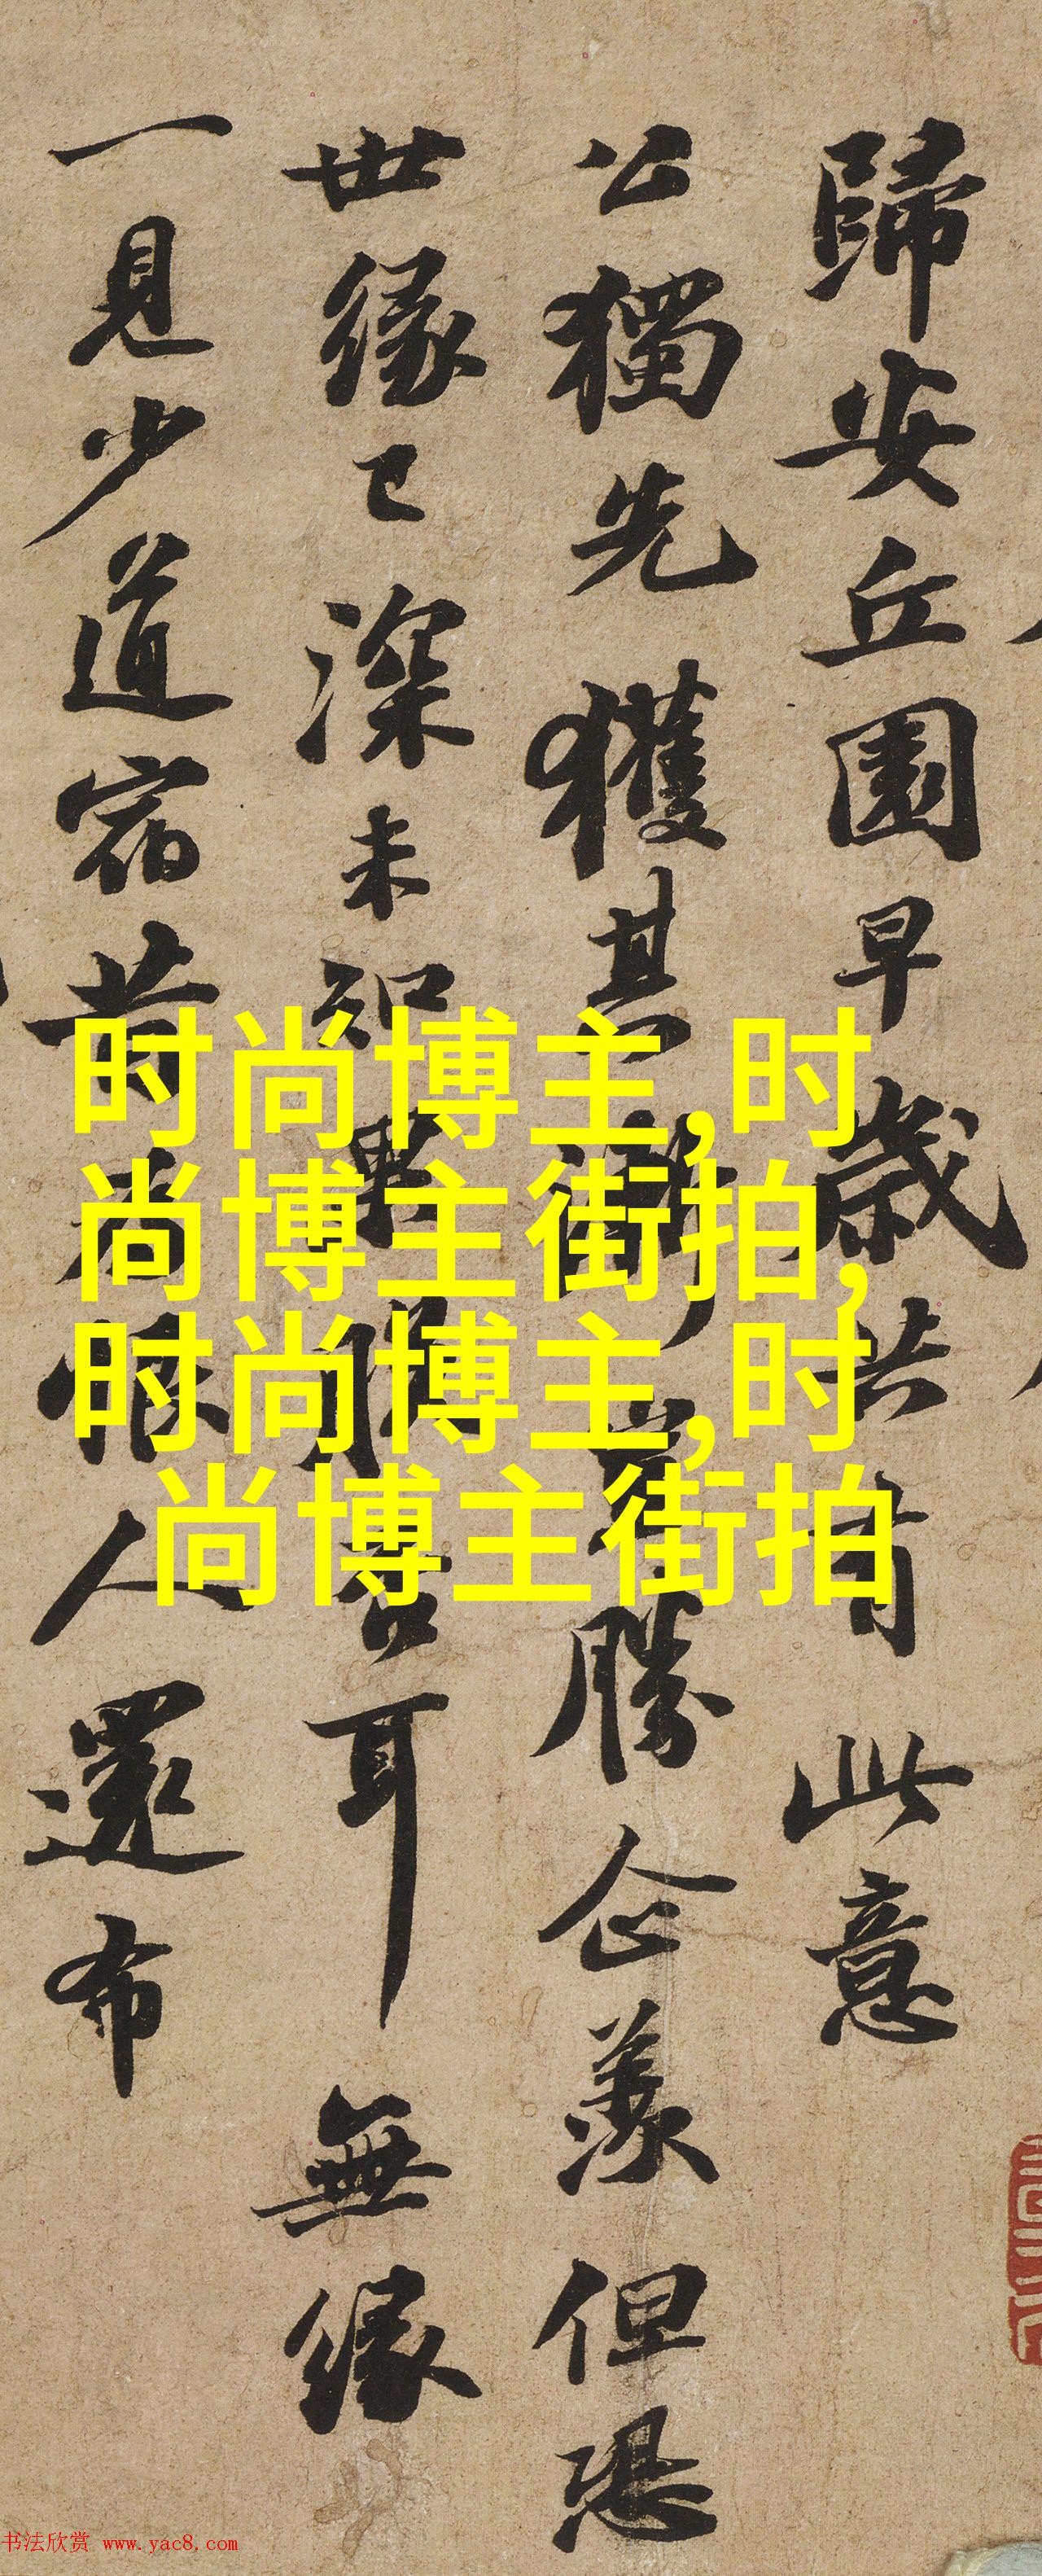 歸安丘園早歲共有此意
公獨先獲其漸豈勝企羨但恐
世緣已深未知果脫否耳無緣
一見少道宿昔為恨人還布
时尚博主,时
尚博主街拍,
时尚博主,时
尚博主街拍
书法欣赏 www.yac8.com